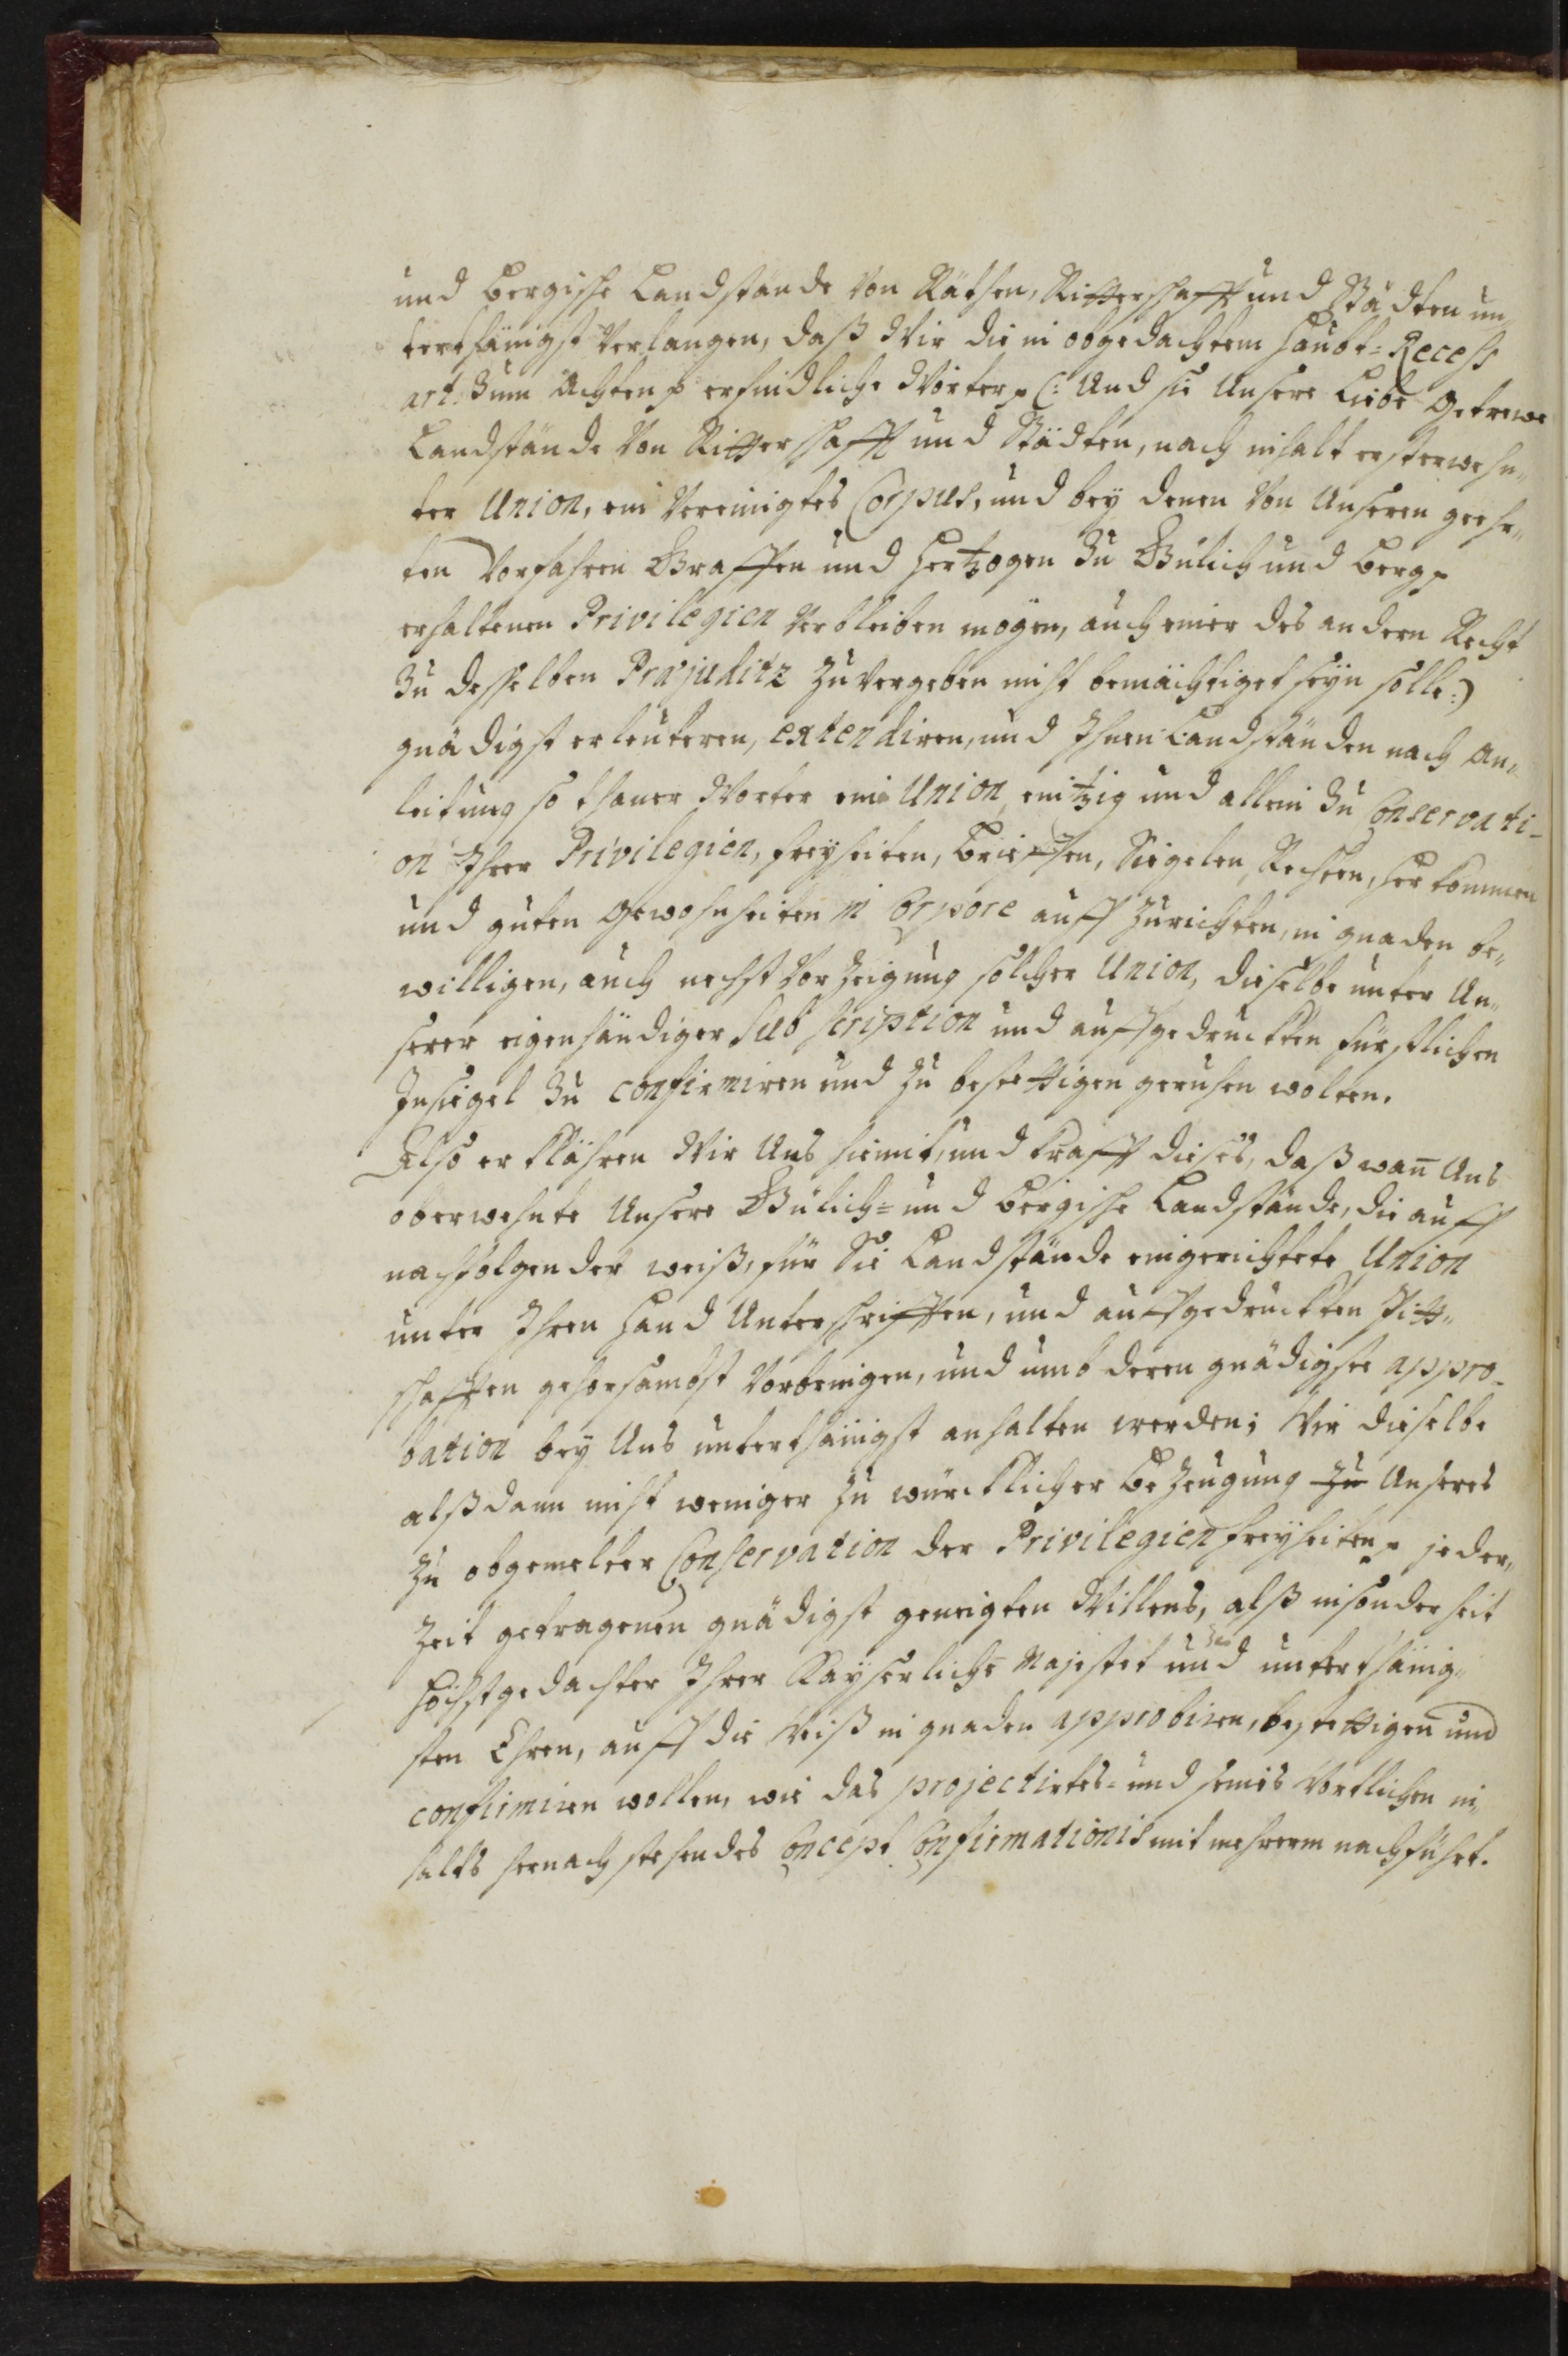 und Bergische Landstände von Räthen, Ritterschafft und Städten un„
terthänigst verlangen, daß Wir die in obgedachtem Haubt-Recess
art. Zum Achten p erfindliche Wörter p (: Und sie Unsere Liebe Getrewe
Landstände von Ritterschafft und Städten, nach inhalt ersterwehn„
ter Union, ein Vereinigtes Corpus, und bey denen von Unseren geehr„
ten Vorfahren Graffen und Hertzogen zu Gülich und Berg p
erhaltenen Privilegien verbleiben mögen, auch einer des andern Recht
zu desselben Præjuditz zu vergeben nicht bemächtiget seyn solle :)
gnädigst erleuteren, extendiren, und Ihnen Landständen nach An„
leitung so thaner Worter eine Union, eintzig und allein zu Conservati-
on Ihrer Privilegien, Freyheiten, Brieffen, Siegelen, Rechten, Herkommen
und guten Gewohnheiten in Corpore auff zurichten, in gnaden be„
willigen, auch nechst Vorzeigung solcher Union, dieselbe unter Un„
serer eigenhändiger Subscription und auffgedruckten Fürstlichen
Insiegel zu confirmiren und zu bestettigen geruhen wolten.
Also erklähren Wir Uns hiemit, und krafft dieses, daß wan̄ Uns
oberwehnte Unsere Gülich- und Bergische Landstände, die auff
nachfolgender weiß, für Sie Landstände eingerichtete Union
unter Ihren Hand Unterschrifften, und auffgedruckten Pitt„
schafften gehorsambst vorbringen, und umb deren gnädigste appro-
bation bey Uns unterthänigst anhalten werden; Wir dieselbe
alßdann nicht weniger zu würcklicher Bezeugung zu Unseres
zu obgemelter Conservation der Privilegien Freyheiten p jeder„
zeit getragenen gnädigst geneigten Willens, alß insonderheit
höchstgedachter Ihrer Kayserliche Majestet und unterthänig„
sten Ehren, auff die Weiß in gnaden approbiren, bestettigen und
confirmiren wollen, wie das projectirtes- und seines Wortlichen in„
halts hernach stehendes Concept Confirmationis mit mehrerm nachführt.